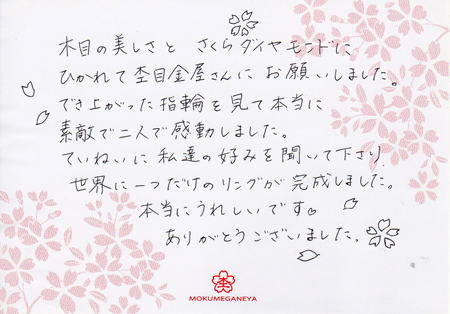 木目の美しさと さくらダイヤモンドに
ひかれて杢目金屋さんに お願いしました。
でき上がった指輪を見て本当に
素敵で二人で感動しました。
ていねいに私達の好みを聞いて下さり
世界に一つだけのリングが完成しました。
本当にうれしいです。
ありがとうございました。
MOKUMEGANEYA